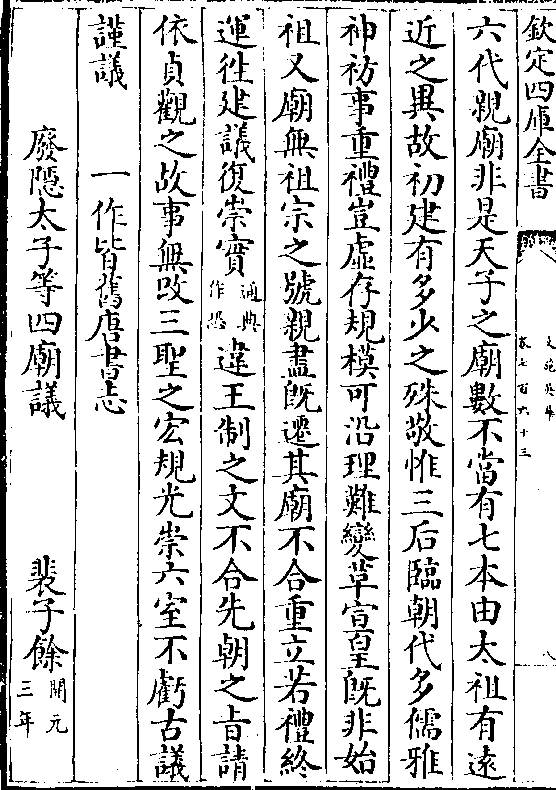 欽定四庫全書
文苑英華
卷七百六十三
八
六代親廟非是天子之廟數不當有七本由太祖有遠
近之異故初建有多少之殊敬惟三后臨朝代多儒雅
神祊事重禮豈虛存規模可沿理難變革宣皇既非始
祖又廟無祖宗之號親盡既遷其廟不合重立若禮終
運徃建議復崇實通典作恐違王制之文不合先朝之旨請
依貞觀之故事無改三聖之宏規光崇六室不虧古議
謹議　一作皆舊唐書志
廢隠太子等四廟議　裴子餘開元三年